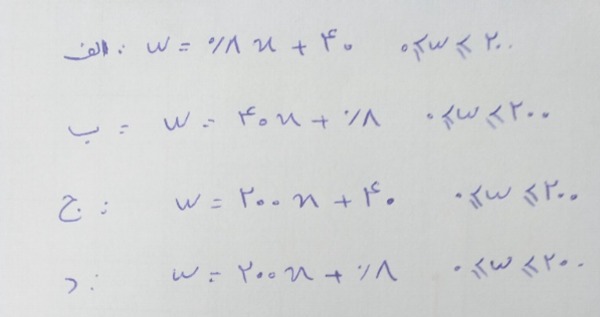 الف: w = ٪۸ n + ۴۰ ۰≤w≤۲۰۰
ب = w = ۴۰n + ٪۸ ۰≤w≤۲۰۰
ج: w = ۲۰۰n + ۴۰ ۰≤w≤۲۰۰
د: w = ۲۰۰n + ٪۸ ۰≤w≤۲۰۰